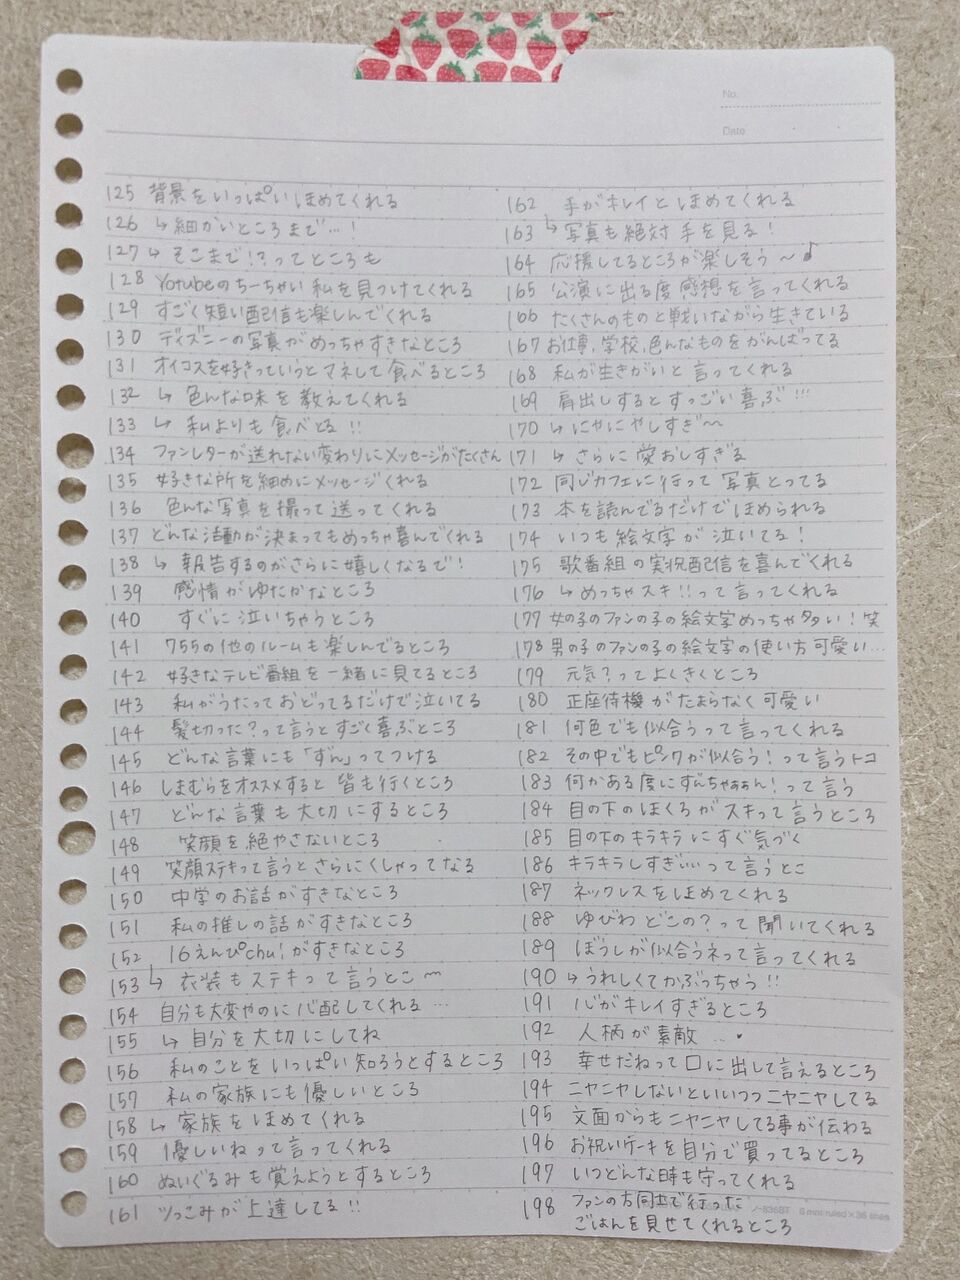 No.
Date
125 背景をいっぱいほめてくれる
126 ↳細かいところまで…!
127 ↳そこまで!?ってところも
128 Yotubeのちーちゃい私を見つけてくれる
129 すごく短い配信も楽しんでくれる
130 ディズニーの写真がめっちゃすきなところ
131 オイコスを好きっていうとマネして食べるところ
132 ↳色んな味を教えてくれる
133 ↳私よりも食べとる!!
134 ファンレターが送れない変わりにメッセージがたくさん
135 好きな所を細めにメッセージくれる
136 色んな写真を撮って送ってくれる
137 どんな活動が決まってもめっちゃ喜んでくれる
138 ↳報告するのがさらに嬉しくなるで!
139 感情がゆたかなところ
140 すぐに泣いちゃうところ
141 755の他のルームも楽しんでるところ
142 好きなテレビ番組を一緒に見てるところ
143 私がうたっておどってるだけで泣いてる
144 髪切った?って言うとすごく喜ぶところ
145 どんな言葉にも「ずん」ってつける
146 しまむらをオススメすると皆も行くところ
147 どんな言葉も大切にするところ
148 笑顔を絶やさないところ
149 笑顔ステキって言うとさらにくしゃってなる
150 中学のお話がすきなところ
151 私の推しの話がすきなところ
152 16えんぴchu!がすきなところ
153 ↳衣装もステキって言うとこ〜
154 自分も大変やのに心配してくれる…
155 ↳自分を大切にしてね
156 私のことをいっぱい知ろうとするところ
157 私の家族にも優しいところ
158 ↳家族をほめてくれる
159 優しいねって言ってくれる
160 ぬいぐるみも覚えようとするところ
161 ツっこみが上達してる!!
162 手がキレイとほめてくれる
163 ↳写真も絶対手を見る!
164 応援してるところが楽しそう〜♪
165 公演に出る度感想を言ってくれる
166 たくさんのものと戦いながら生きている
167 お仕事,学校,色んなものをがんばってる
168 私が生きがいと言ってくれる
169 肩出しするとすっごい喜ぶ!!!
170 ↳にやにやしすぎ〜
171 ↳さらに愛おしすぎる
172 同じカフェに行って写真とってる
173 本を読んでるだけでほめられる
174 いつも絵文字が泣いてる!
175 歌番組の実況配信を喜んでくれる
176 ↳めっちゃスキ!!って言ってくれる
177 女の子のファンの子の絵文字めっちゃ多い!笑
178 男の子のファンの子の絵文字の使い方可愛い…
179 元気?ってよくきくところ
180 正座待機がたまらなく可愛い
181 何色でも似合うって言ってくれる
182 その中でもピンクが似合う!って言うトコ
183 何がある度にずんちゃぁぁん!って言う
184 目の下のほくろがスキって言うところ
185 目の下のキラキラにすぐ気づく
186 キラキラしすぎぃぃって言うとこ
187 ネックレスをほめてくれる
188 ゆびわどこの?って聞いてくれる
189 ぼうしが似合うネって言ってくれる
190 ↳うれしくてかぶっちゃう!!
191 心がキレイすぎるところ
192 人柄が素敵…♥
193 幸せだねって口に出して言えるところ
194 ニヤニヤしないといいつつニヤニヤしてる
195 文面からもニヤニヤしてる事が伝わる
196 お祝いケーキを自分で買ってるところ
197 いつどんな時も守ってくれる
198 ファンの方同士で行った
ごはんを見せてくれるところ
ノ-836BT 6 mm ruled×36 lines